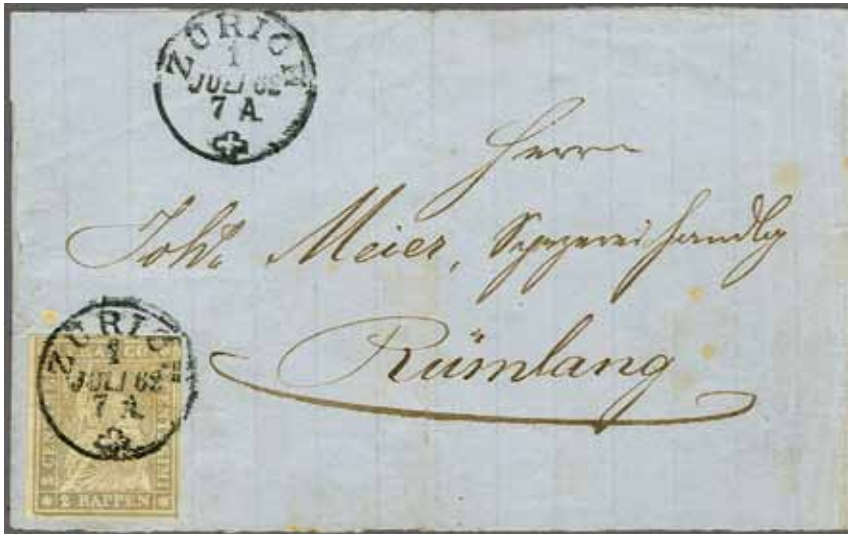 ZÜRICH
1
JULI 62
7 A.
Herrn
Joh. Meier, Spezereihandlg
Rümlang
ZÜRICH
1
JULI 62
7 A.
2 RAPPEN